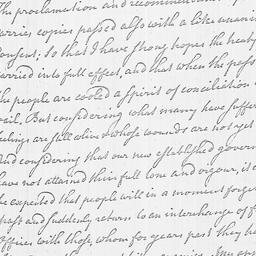 The proclamation and recommen
arries copies passed also with a like unanim
onsent; so that I have strong hopes the treaty
arried into full effect, and that when the pass
he people are cooled a spirit of conciliation
vail. But considering what many have suffer
eelings are still alive whose wounds are not yet
nd considering that our new established govern
have not attained their full tone and vigour, it
be expected that people will in a moment forget
past and suddenly return to an interchange of f
offices with those, whom for years past they ha